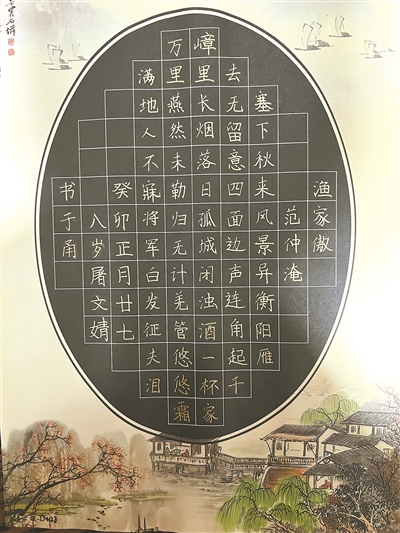 渔家傲
范仲淹
塞下秋来风景异衡阳雁
去无留意四面边声连角起千
嶂里长烟落日孤城闭浊酒一杯家
万里燕然未勒归无计羌管悠悠霜
满地人不寐将军白发征夫泪
癸卯正月廿七
八岁屠文婧
书于甬